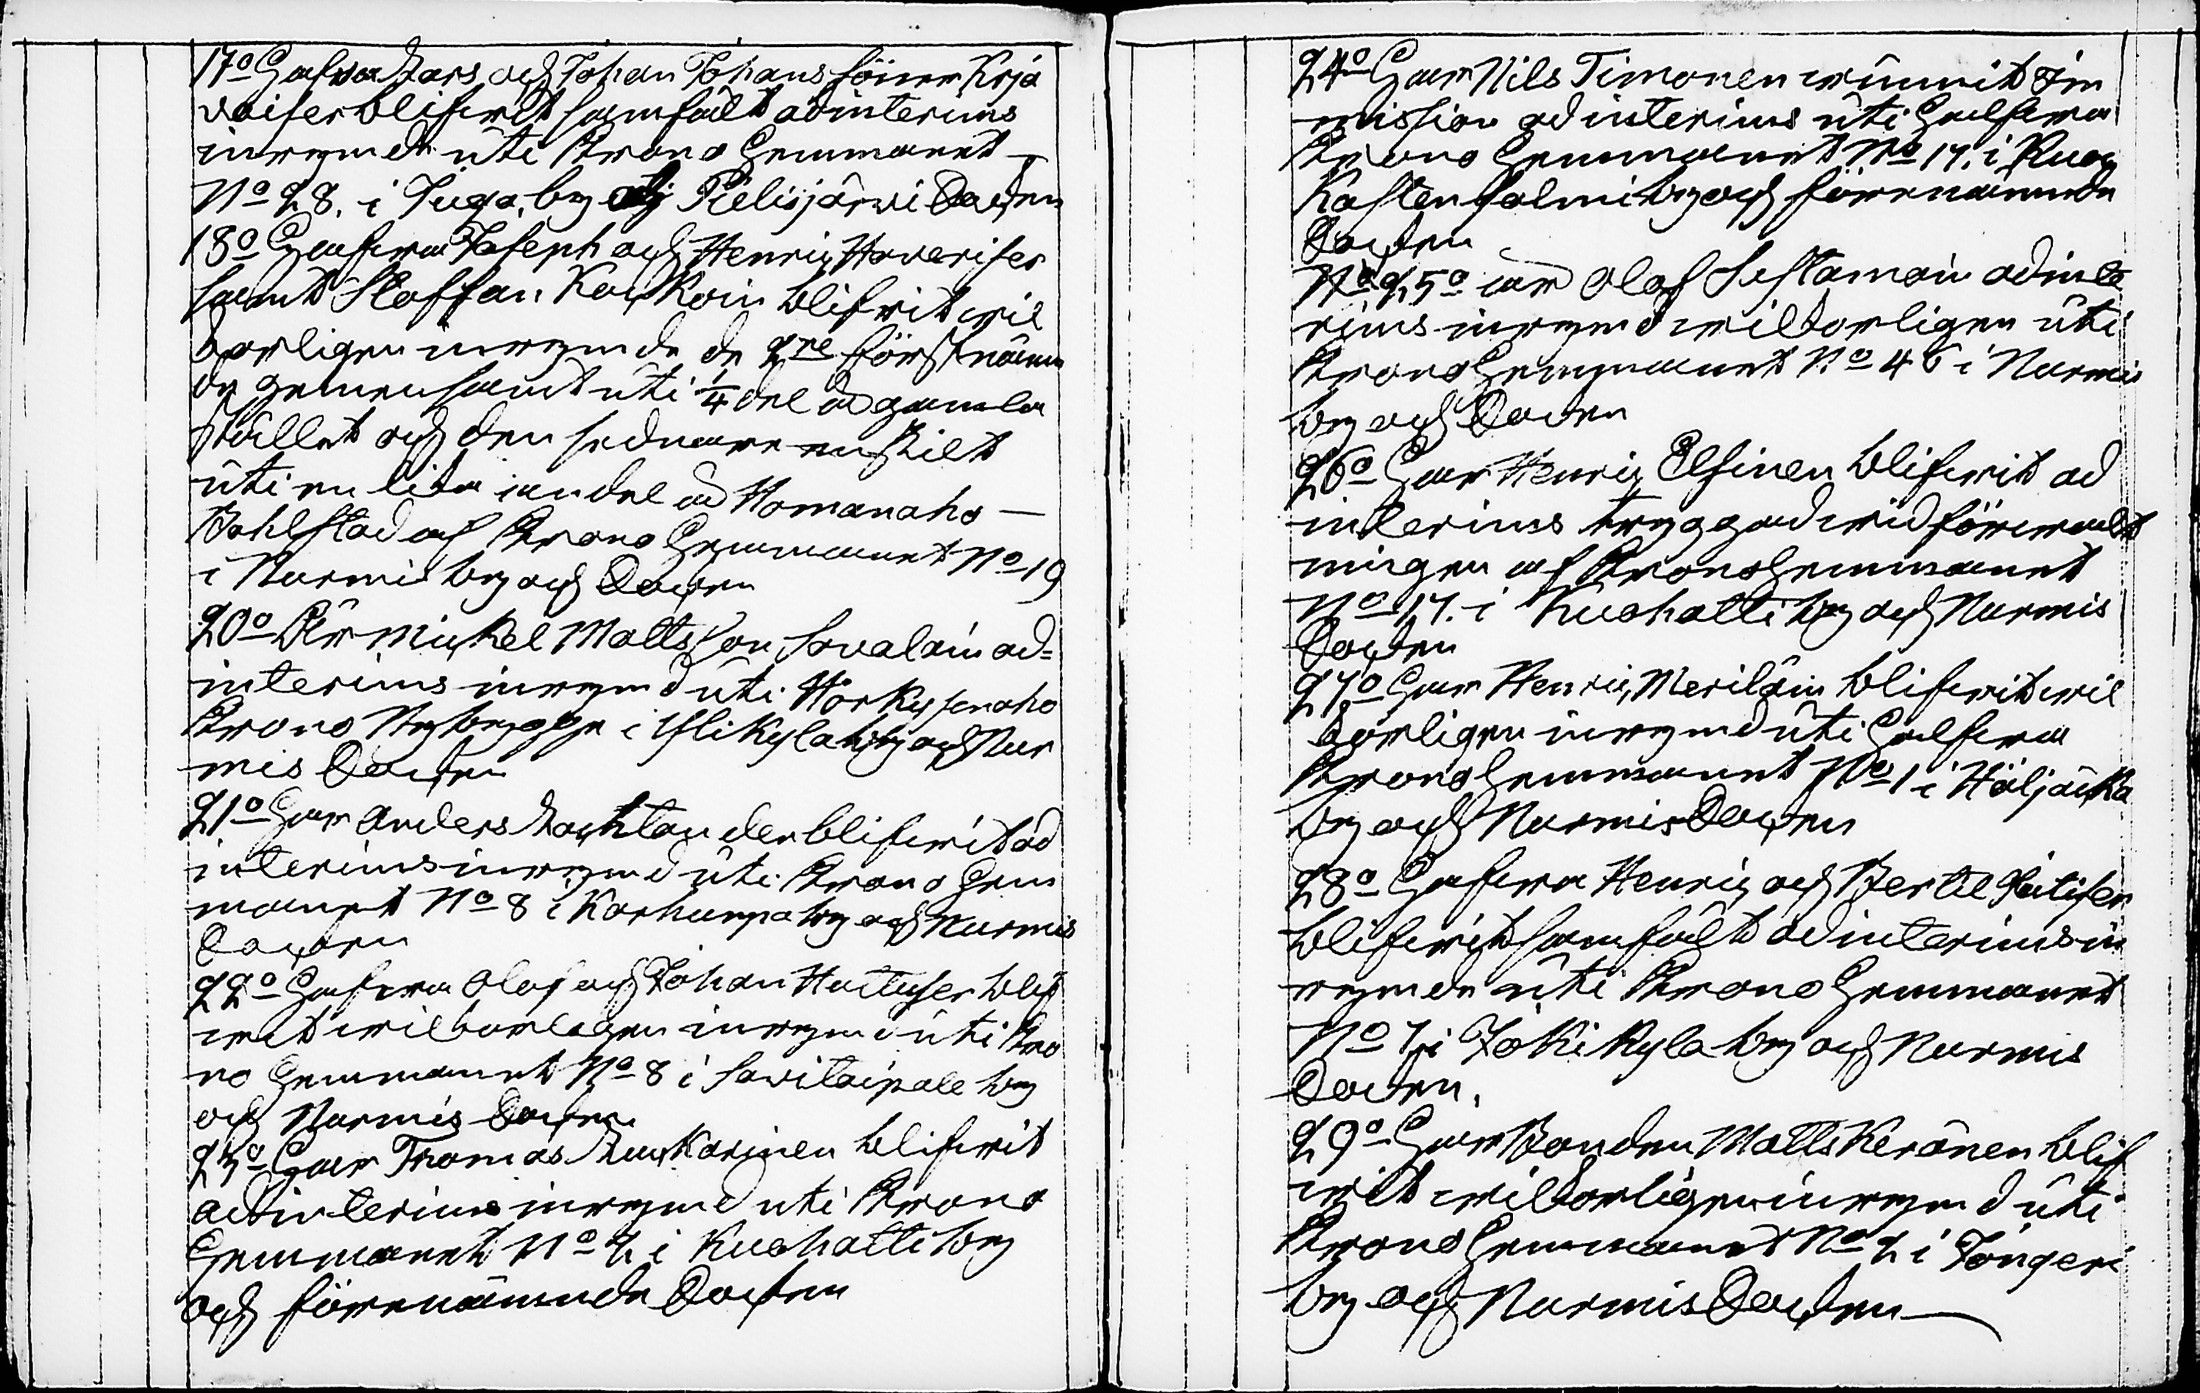 17o Hafva Lars och Johan Johans söner Krja
vaiser blifvit samfält adinterims
inrymde uti Krono Hemmanet
No 28. i Juga by och Pielisjärvi Socken
18o Hafva Joseph och Henric Haveriser
samt Staffan Kackoin blifvit vil
korligen inrymde de 2ne förstnämn
de gemensamt uti 1/4 del ad gamla
stället och den sednare enskilt
uti en lika andel ad Homanaho
Bohlstad af Krono Hemmanet No 19
i Nurmis by och Socken
20o Är Mickel Mattsson Sovalain ad=
interims inrymd uti Hörkysenaho
Krono Nybygge i Ylikyla by och Nur
mis Socken
21o Har Anders Lachtander blifvit ad
interims inrymd uti Krono Hem
manet No 8 i Karhunpa by och Nurmis
Socken
22o Hafva Olof och Johan Hattuser blif
vit vilkorligen inrymd uti Kro
no Hemmanet No 8 i Savitaipale by
och Nurmis Socken
23o Har Thomas Luckarinen blifvit
adinterims inrymd uti Krono
Hemmanet No 2 i Kuohatti by
och förenämnde Socken
24o Har Nils Timonen vunnit im
mission adinterims uti Halfva
Krono Hemmanet No 17. i Kuoc
Kasten salmi by och förenämnde
Socken
No 25o är Olof Sistamain adinte
rims inrymd vilkorligen uti
Krono Hemmanet No 46 i Nurmis
by och Socken
26o Har Henric Elfinen blifvit ad
interims tryggad vid förvalt
ningen af Krono Hemmanet
No 17. i Kuohatti by och Nurmis
Socken
27o Har Henric Meriläin blifvit vil
korligen inrymd uti Halfva
Krono Hemmanet No 1 i Höljäcka
by och Nurmis Socken
28o Hafva Henric och Bertil Piitiser
blifvit samfält adinterims in
rymde uti Krono Hemmanet
No 7 i Jokikyla by och Nurmis
Socken.
29o Har Bonden Matts Keränen blif
vit vilkorligen inrymd uti
Krono Hemmanet No 2 i Jongeri
by och Nurmis Socken